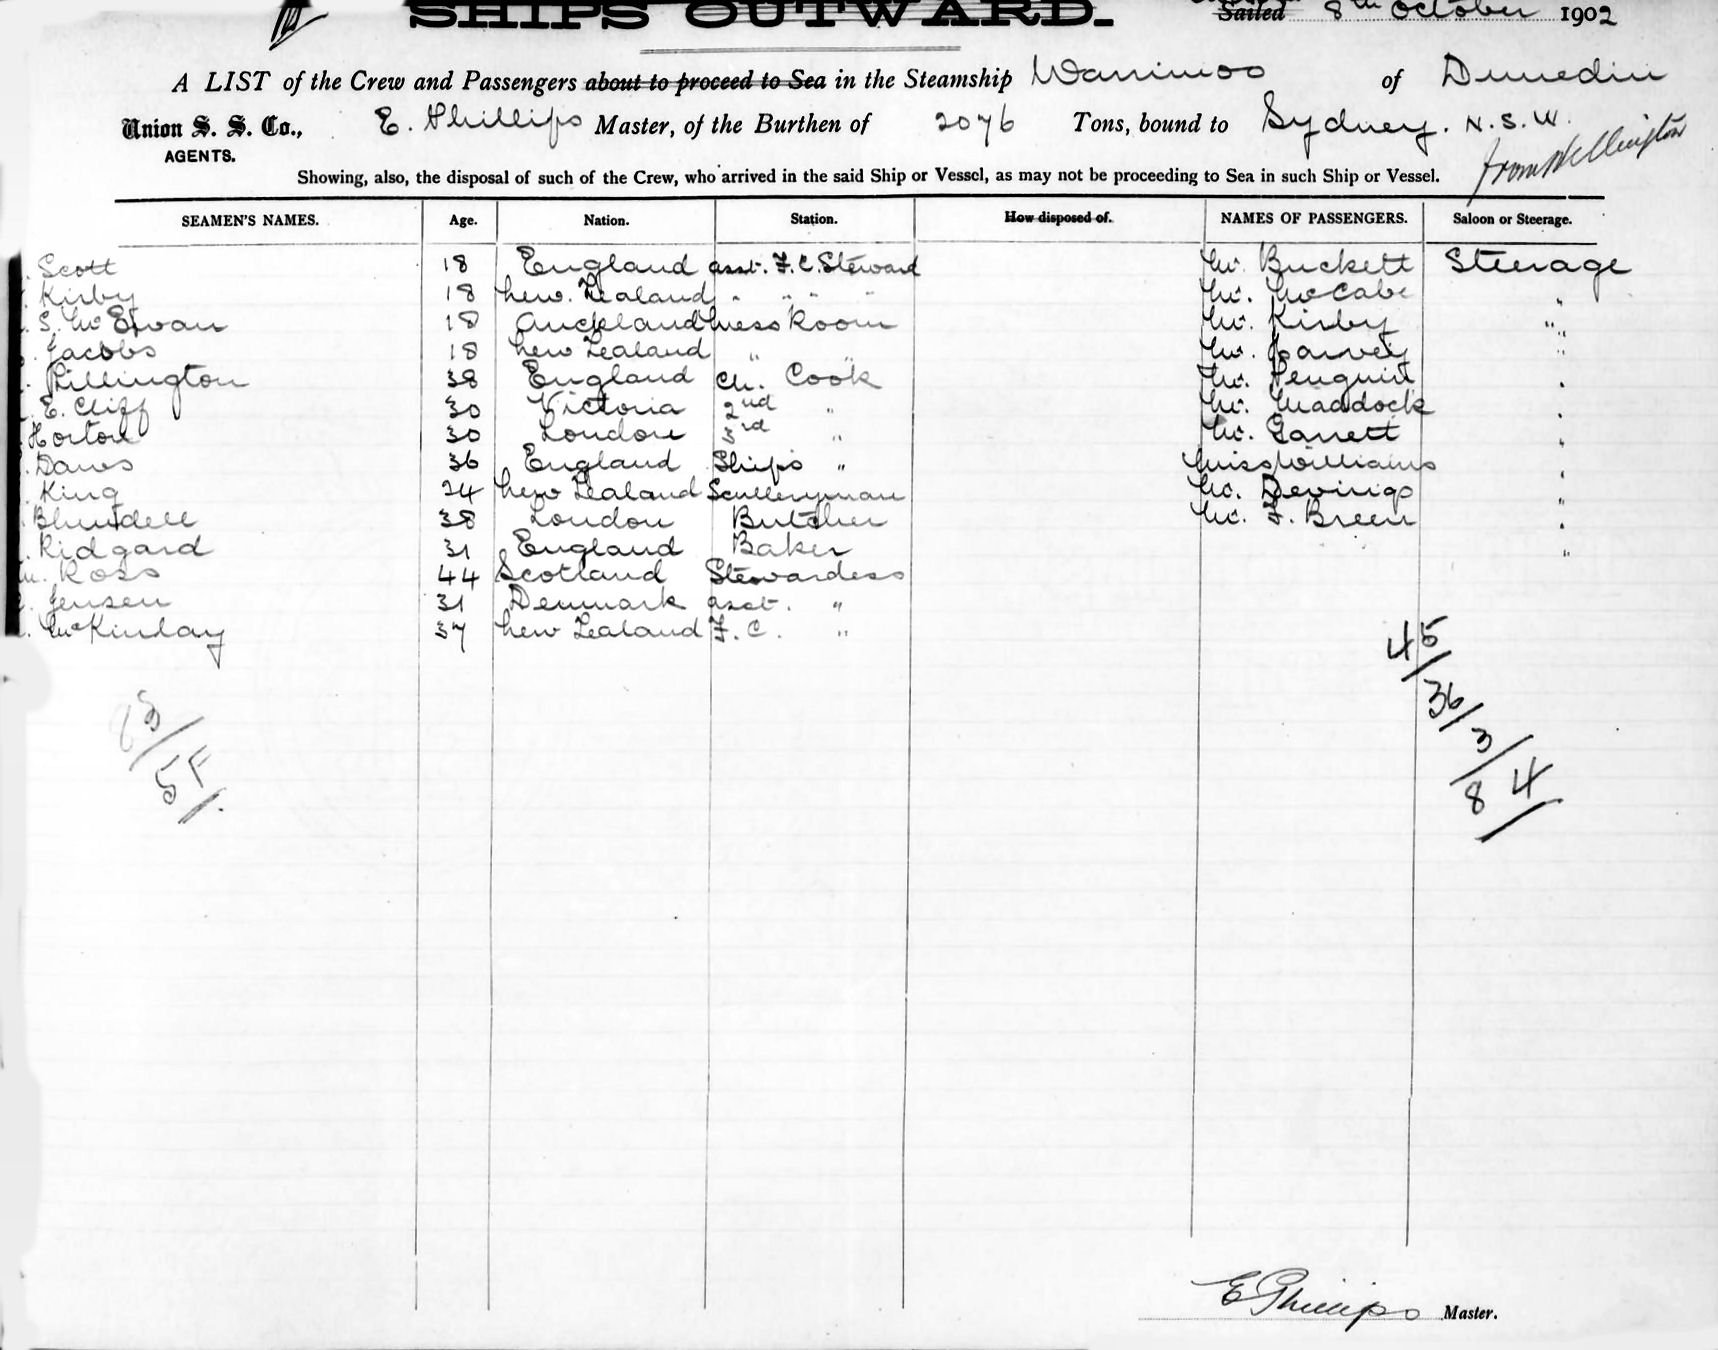 SHIPS OUTWARD.
Sailed 8th October 1902
A LIST of the Crew and Passengers about to proceed to Sea in the Steamship Warrimoo of Dunedin
Union S. S. Co., E. Phillips Master, of the Burthen of 2076 Tons, bound to Sydney. N.S.W.
AGENTS.
from Wellington
Showing, also, the disposal of such of the Crew, who arrived in the said Ship or Vessel, as may not be proceeding to Sea in such Ship or Vessel.
SEAMEN'S NAMES. Age. Nation. Station. How disposed of. NAMES OF PASSENGERS. Saloon or Steerage.
Scott 18 England asst. F.C. Steward Mr. Buckett Steerage
Kirby 18 New Zealand " " " " Mr. McCabe "
S. McEwan 18 Auckland Mess Room Mr. Kirby " "
Jacobs 18 New Zealand " " Mr. Harvey "
Pillington 38 England Ch. Cook Mr. Penguin "
E. Cliff 30 Victoria 2nd " Mr. Maddock "
Horton 30 London 3rd " Mr. Garrett "
Daws 36 England Ships " Miss Williams "
King 24 New Zealand Sculleryman Mr. Devings "
Blundell 38 London Butcher Mr. F. Breen "
Ridgard 31 England Baker "
Ross 44 Scotland Stewardess
Jensen 31 Denmark asst. "
McKinlay 37 New Zealand F.C. "
45/
36/
3/
84/
83/
5F/
E Phillips Master.